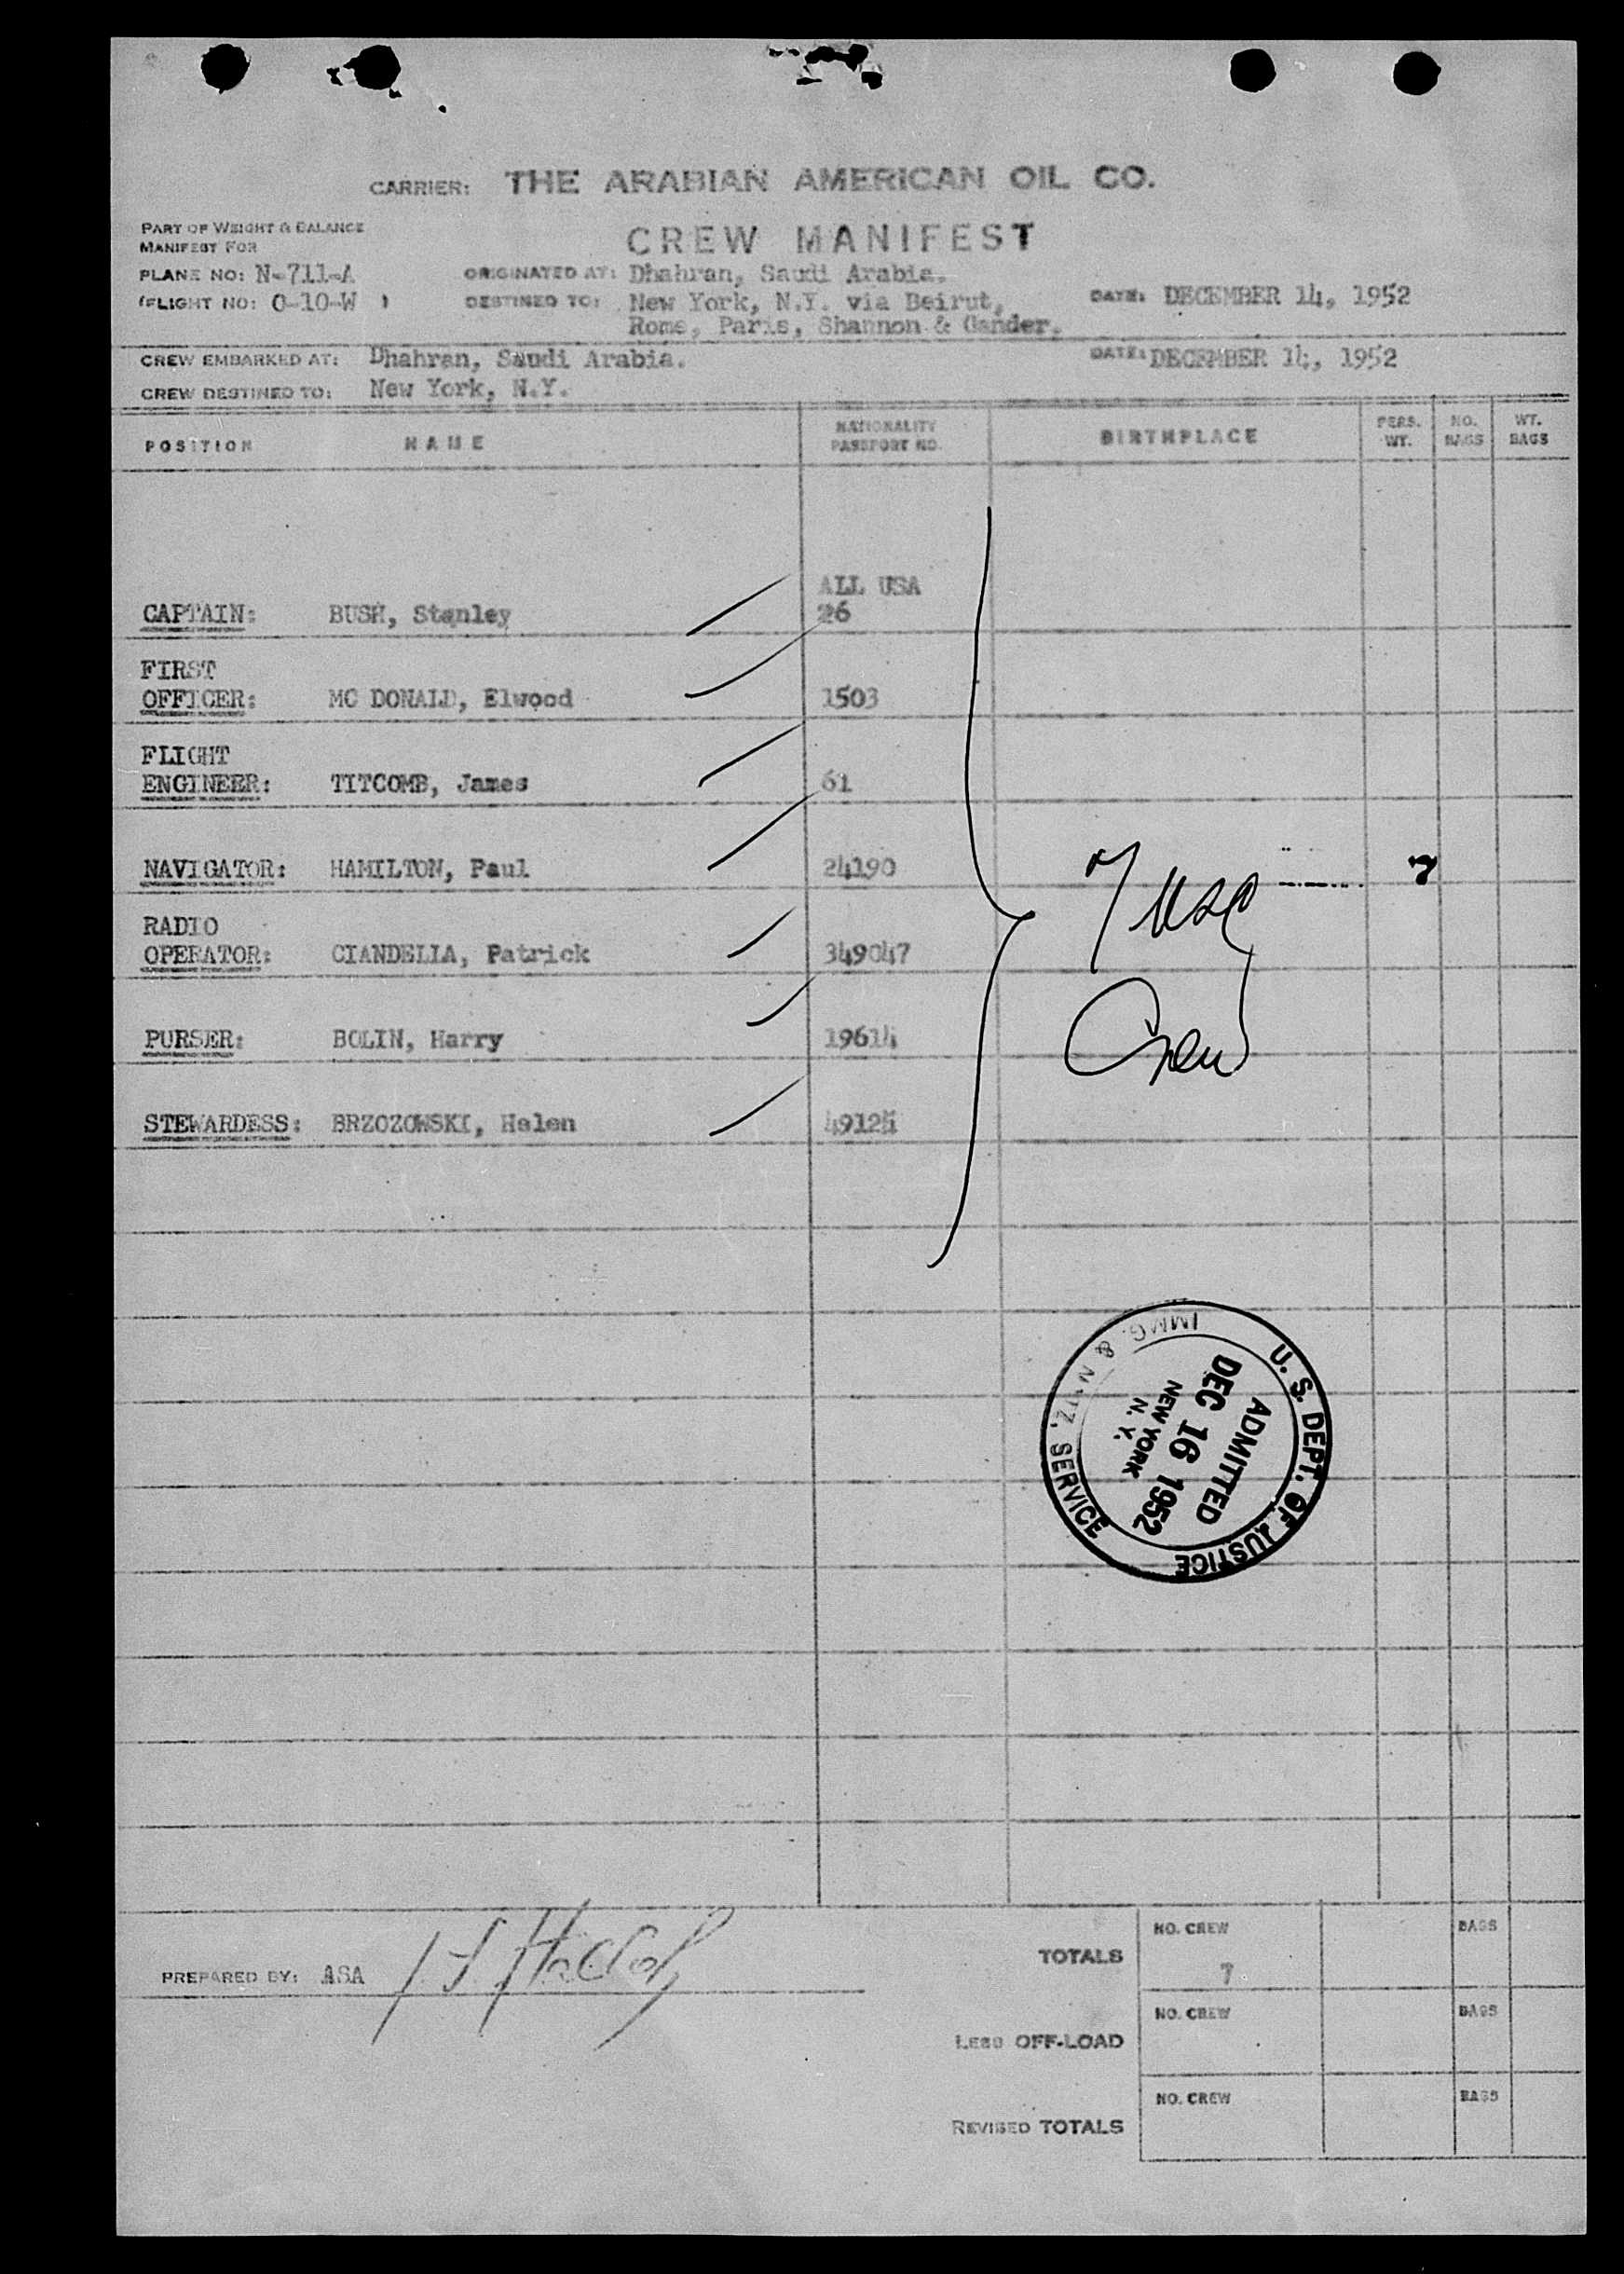 CARRIER: THE ARABIAN AMERICAN OIL CO.
PART OF WEIGHT & BALANCE
MANIFEST FOR
CREW MANIFEST
PLANE NO: N-711-A ORIGINATED AT: Dhahran, Saudi Arabia.
(FLIGHT NO: O-10-W ) DESTINED TO: New York, N.Y. via Beirut, DATE: DECEMBER 14, 1952
Rome, Paris, Shannon & Gander.
CREW EMBARKED AT: Dhahran, Saudi Arabia. DATE: DECEMBER 14, 1952
CREW DESTINED TO: New York, N.Y.
POSITION NAME NATIONALITY PASSPORT NO. BIRTHPLACE PERS. WT. NO. BAGS WT. BAGS
ALL USA
CAPTAIN: BUSH, Stanley 26
FIRST
OFFICER: MC DONALD, Elwood 1503
FLIGHT
ENGINEER: TITCOMB, James 61
NAVIGATOR: HAMILTON, Paul 24190
7 USC 7
RADIO
OPERATOR: CIANDELLA, Patrick 349047
Crew
PURSER: BOLIN, Harry 19614
STEWARDESS: BRZOZOWSKI, Helen
U. S. DEPT. OF JUSTICE
ADMITTED
DEC 16 1952
NEW YORK
N. Y.
IMMG. & NATZ. SERVICE
NO. CREW BAGS
TOTALS
PREPARED BY: ASA 7
NO. CREW BAGS
LESS OFF-LOAD
NO. CREW BAGS
REVISED TOTALS